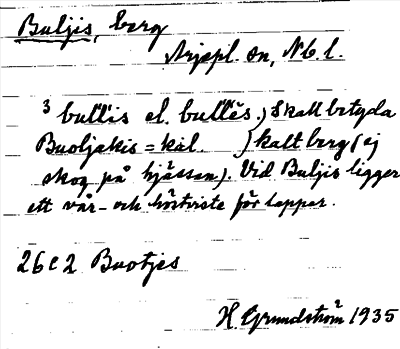 Buljis, berg
Arjepl. sn, Nb. l.
3 bullis el. bullēs.) Skall betyda
Buoljakis = kal. ) kalt berg (ej
skog på hjässan). Vid Buljis ligger
ett vår- och höstviste för lappar.
26 c 2 Buotjes
H. Grundström 1935